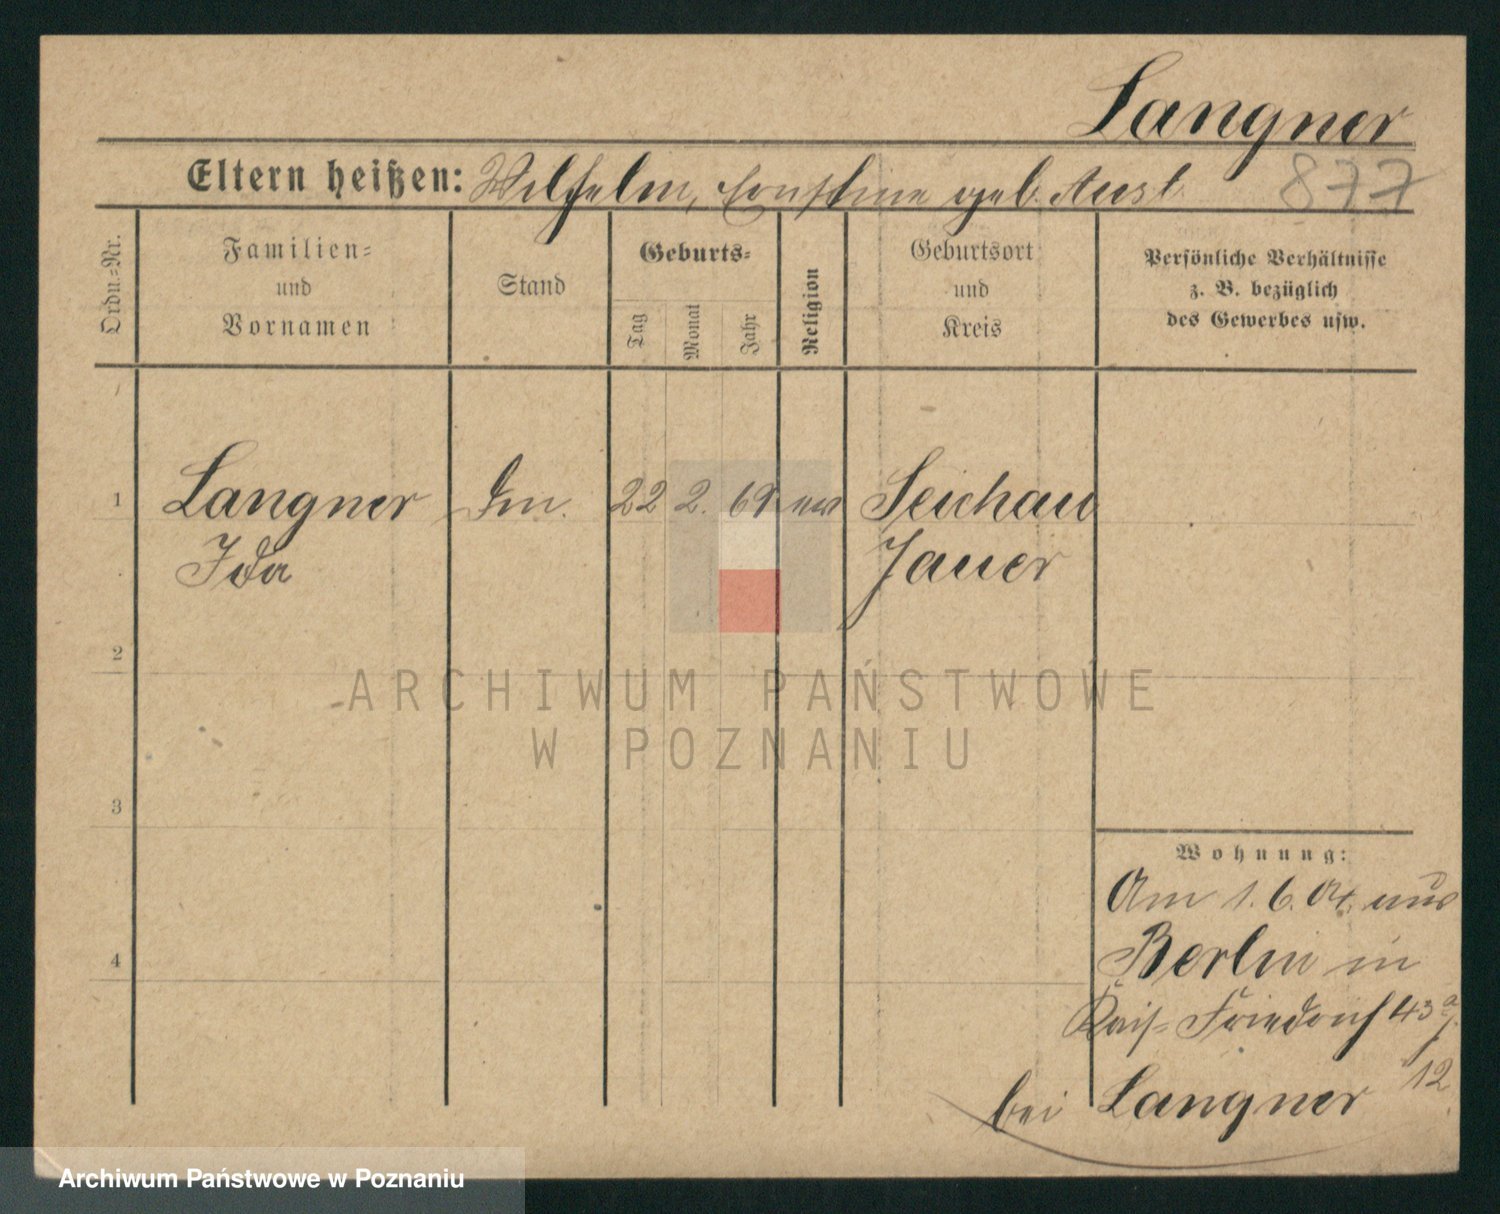 Langner
Eltern heißen: Wilhelm, Ernstine geb. 877
Ordn=Nr.
Familien=
und
Vornamen
Stand
Geburts=
Tag
Monat
Jahr
Religion
Geburtsort
und
Kreis
Persönliche Verhältnisse
z. B. bezüglich
des Gewerbes usw.
1 Langner 22 2. 69 Seichau
Ida Jauer
2
ARCHIWUM PAŃSTWOWE
W POZNANIU
3
Wohnung:
Am 1. 6. 04. aus
4 Berlin in
Kais= Friedrich 43a/
12
bei Langner
Archiwum Państwowe w Poznaniu